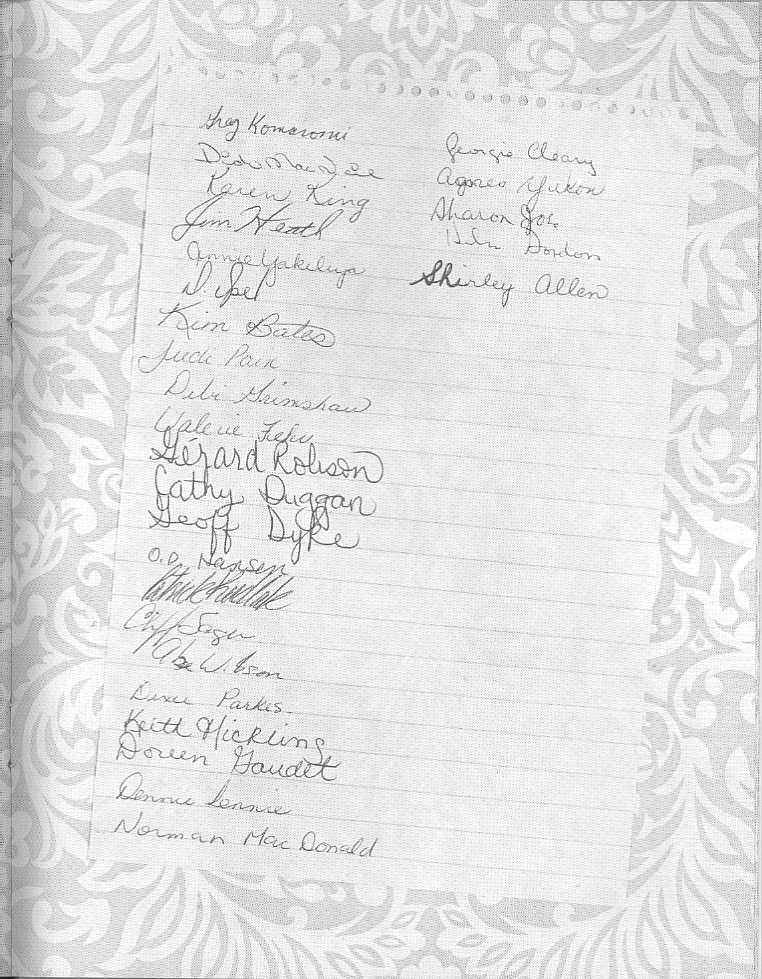 Greg Komaromi
Karen King
Jim Heath
Annie Yakeleya
D. Ipel
Kim Bates
Jude Pain
Debi Grimshaw
Valerie
Gérard Robson
Cathy Duggan
Geoff Dyke
O.D. Hansen
Cliff
Abe Wilson
Dixie Parkes
Keith Hickling
Doreen Gaudet
Dennie Lennie
Norman MacDonald
Georgie Cleary
Agnes Yukon
Sharon
Gordon
Shirley Allen